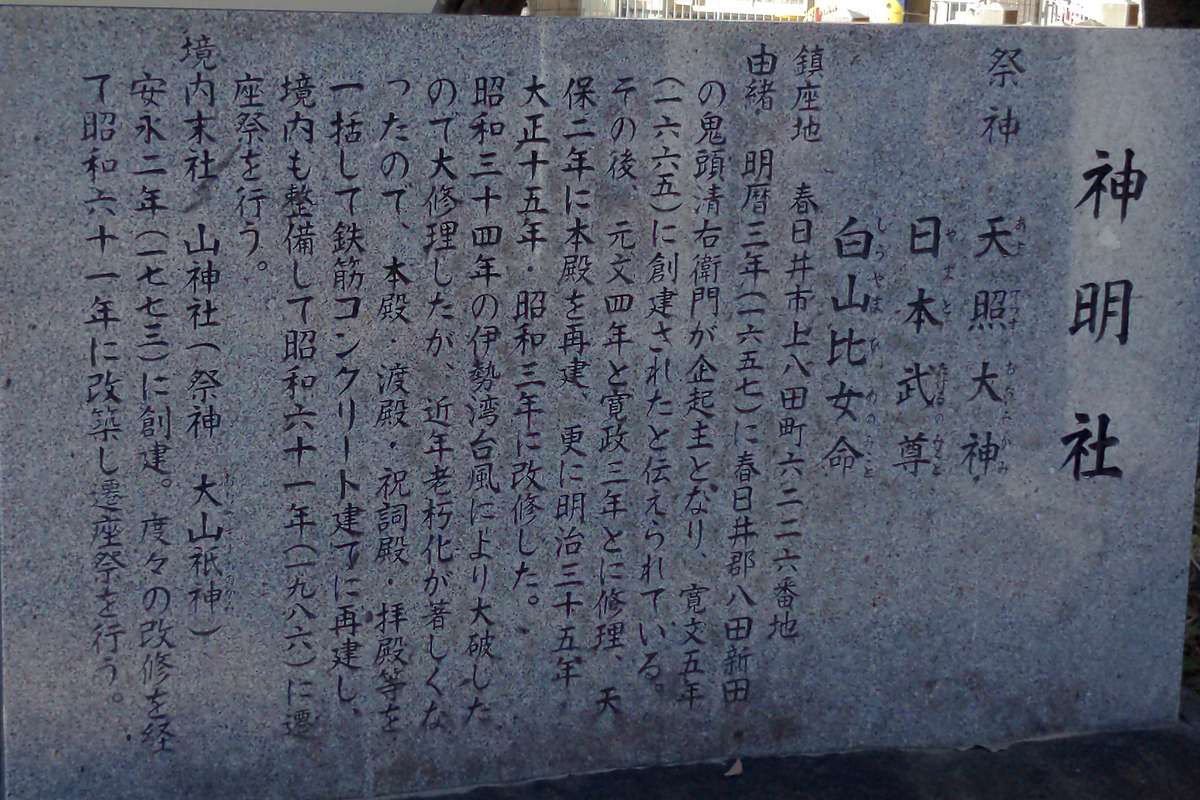 神明社
祭神 天照大神
日本武尊
白山比女命
鎮座地 春日井市上八田町六二二六番地
由緒 明暦三年(一六五七)に春日井郡八田新田
の鬼頭清右衛門が企起主となり、寛文五年
(一六六五)に創建されたと伝えられている。
その後、元文四年と寛政三年とに修理、天
保二年に本殿を再建、更に明治三十五年
大正十五年・昭和三年に改修した。
昭和三十四年の伊勢湾台風により大破した
ので大修理したが、近年老朽化が著しくな
ったので、本殿・渡殿・祝詞殿・拝殿等を
一括して鉄筋コンクリート建てに再建し、
境内も整備して昭和六十一年(一九八六)に遷
座祭を行う。
境内末社 山神社(祭神 大山祇神)
安永二年(一七七三)に創建。度々の改修を経
て昭和六十一年に改築し遷座祭を行う。